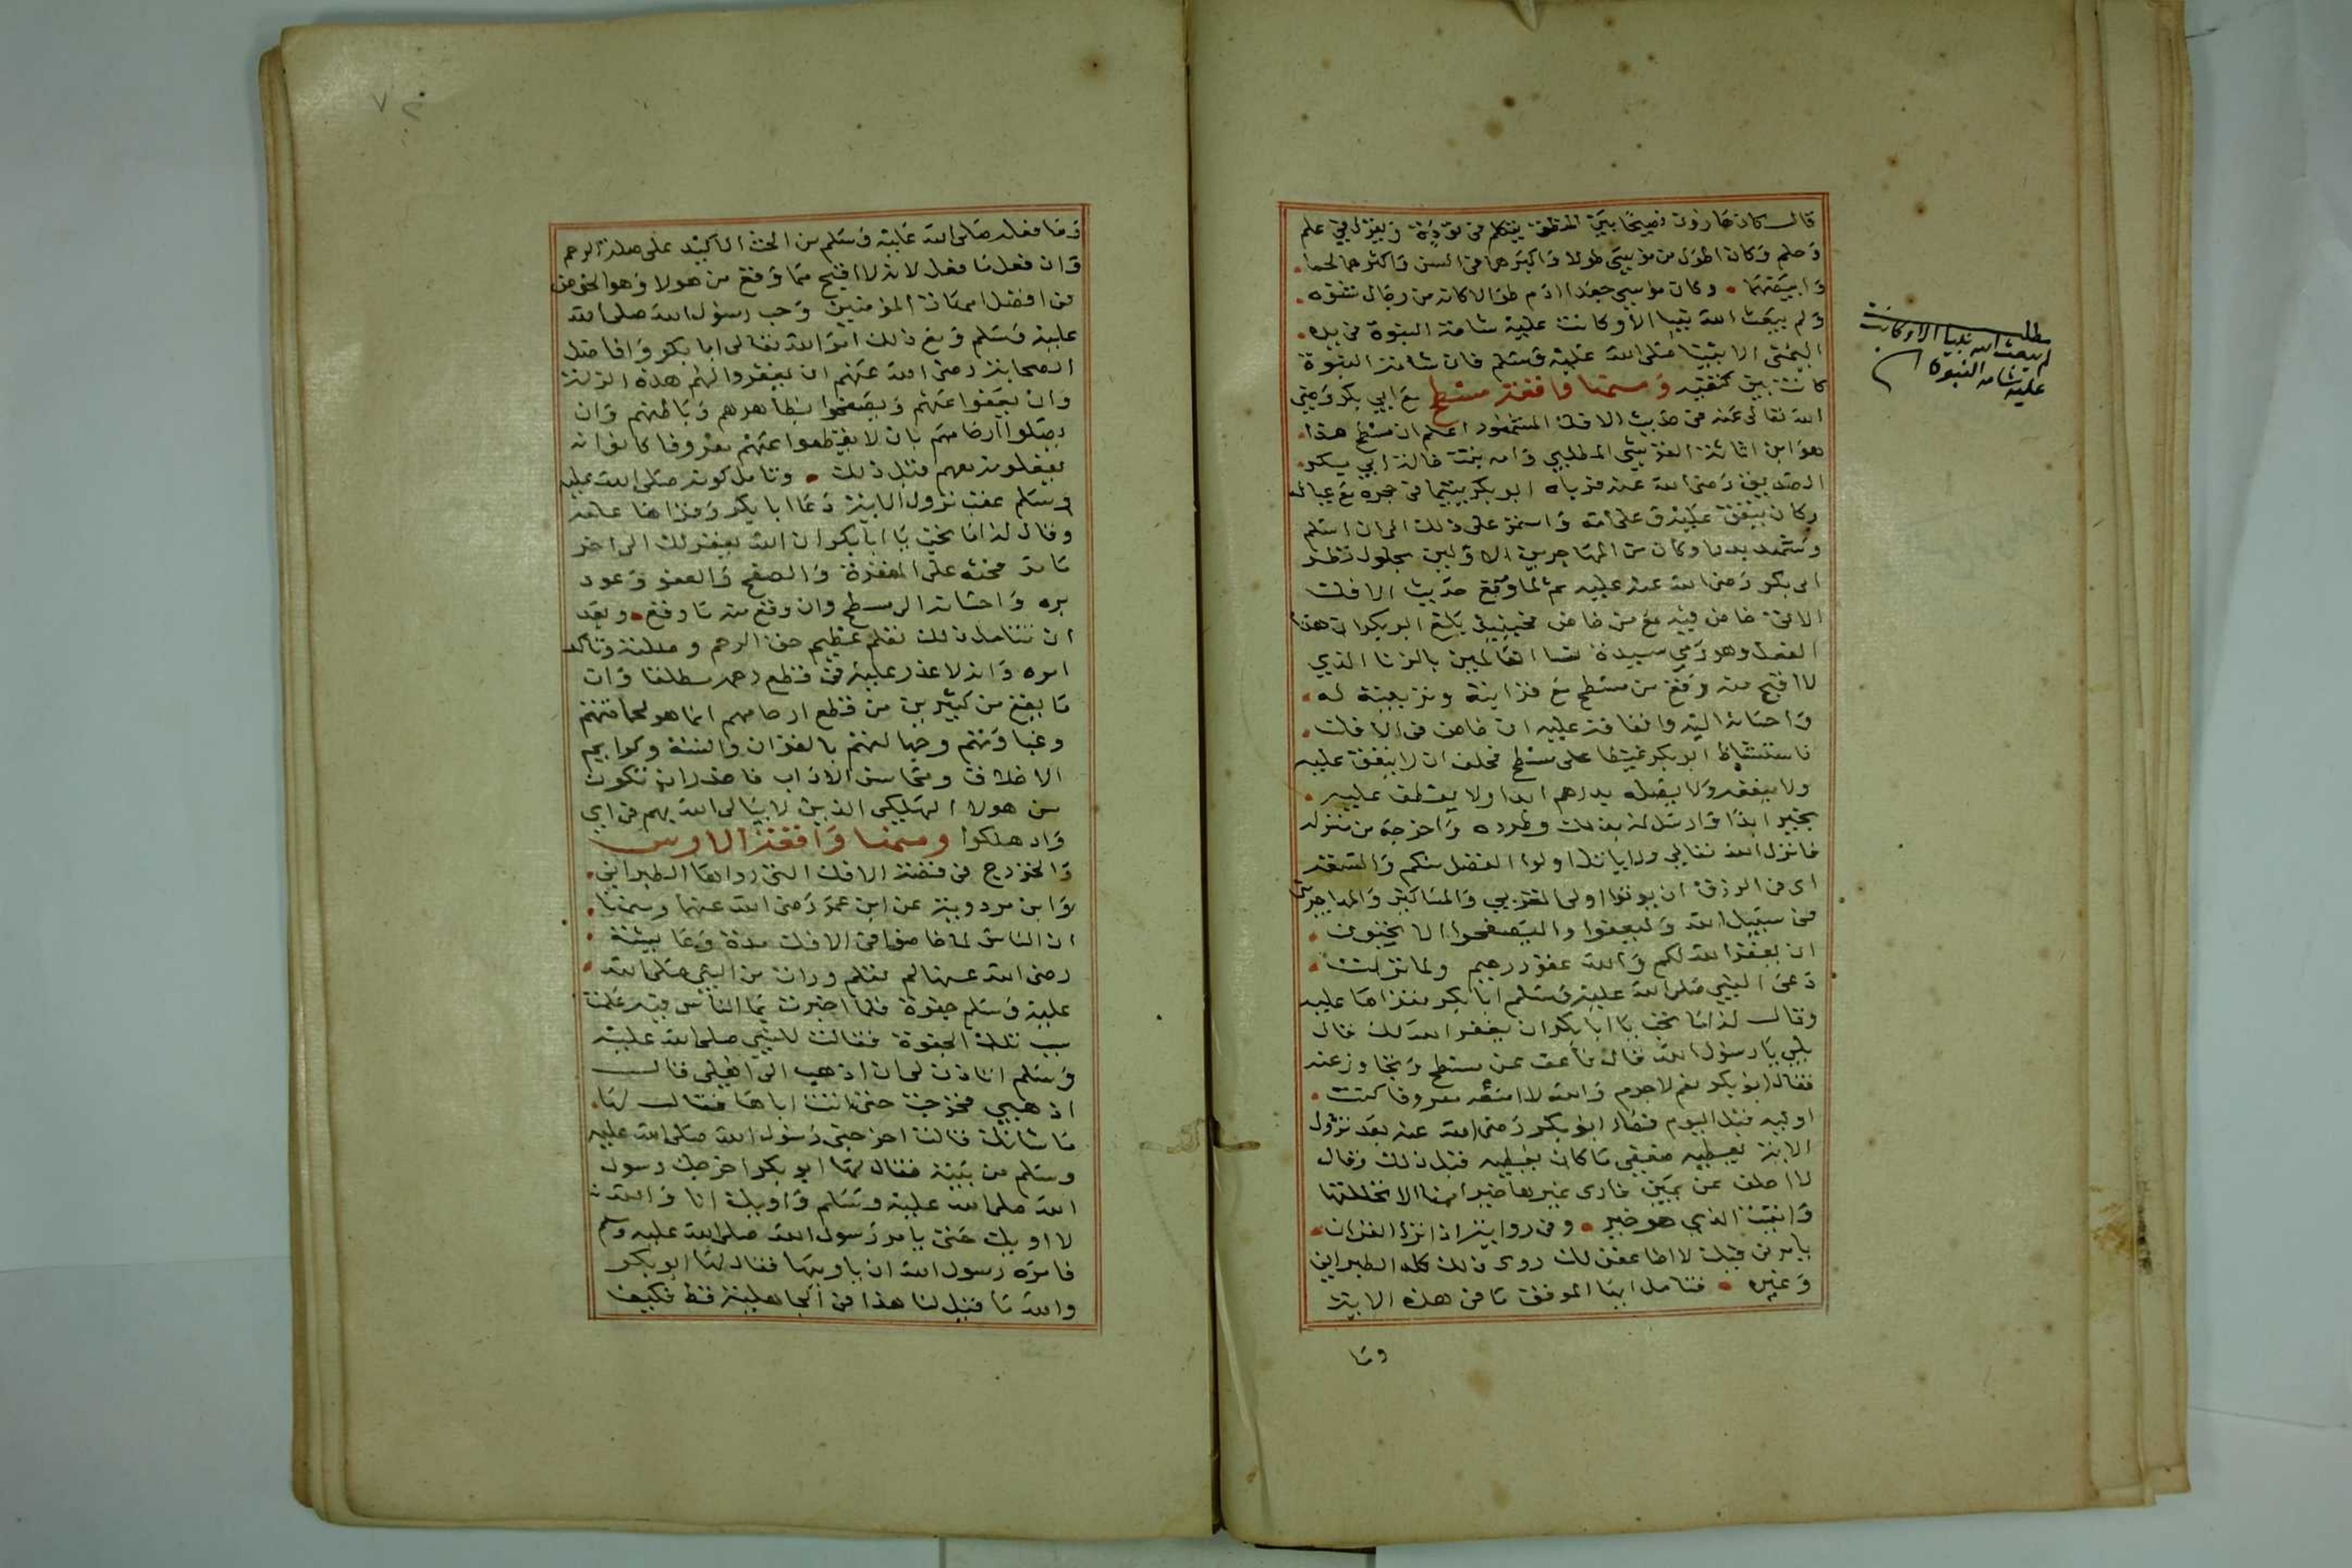 قال كان هارون فصيحا بين المنطق يتكلم في تؤدة ويقول في علم
وحلم وكان اطول من موسى طولا واكبرهما في السن واكثرهما لحما
وابيضهما وكان موسى جعدا ادم طوالا كانه من رجال شنوه
ولم يبعث الله نبيا الا وكانت عليه شامة النبوة في يده
اليمنى الا نبينا صلى الله عليه وسلم فان شامة النبوة
كانت بين كتفيه ومنها واقعة مسطح مع ابي بكر رضي
الله تعالى عنه في حديث الافك المشهور اعلم ان مسطح هذا
هو ابن اثاثة القرشي المطلبي وامه بنت خالة ابي بكر
الصديق رضى الله عنه فرباه ابو بكر يتيما في حجره مع عياله
وكان ينفق عليه وعلى امه واستمر على ذلك الى ان اسلم
وشهد بدرا وكان من المهاجرين الاولين بحلول نظر
ابى بكر رضى الله عنه عليه ثم لما وقع حديث الافك
الافك خاض فيه مع من خاض فحينئذ بلغ ابو بكر ان هذا
الفعل وهو رمي سيدة نسا العالمين بالزنا الذي
لا اقبح منه وقع من مسطح مع قرابته وتربيته له
واحسانه اليه وانفاقه عليه ان خاض في الافك
فاستشاط ابو بكر غيظا على مسطح فحلف ان لا ينفق عليه
ولا ينفعه ولا يصله بدرهم ابدا ولا يعطف عليه
بخير ابدا وارسل له بذلك وطرده واخرجه من منزله
فانزل الله تعالى ولا ياتل اولوا الفضل منكم والسعة
اى في الرزق ان يوتوا اولى القربى والمساكين والمهاجرين
في سبيل الله وليعفوا وليصفحوا الا تحبون
ان يغفر الله لكم والله غفور رحيم ولما نزلت
دعى النبي صلى الله عليه وسلم ابا بكر فقراها عليه
وقال له اما تحب يا ابا بكر ان يغفر الله لك قال
بلى يا رسول الله قال فاعف عن مسطح وتجاوز عنه
فقال ابو بكر نعم لا جرم والله لا امنعه معروفا كنت
اوليه قبل اليوم فصار ابو بكر رضى الله عنه بعد نزول
الاية يعطيه ضعفي ما كان يعطيه قبل ذلك وقال
لا احلف عن يمين فارى غيرها خيرا منها الا تحللتها
واتيت الذي هو خير وفي رواية اذا نزل القران
يامر في قبلك لاضاعفن لك روى ذلك كله الطبراني
وغيره فتامل ايها الموفق ما في هذه الاية
وما
مطلب
لم يبعث الله نبيا الا وكانت
عليه شامة النبوة
٧٢
وما فعله صلى الله عليه وسلم من الحث الاكيد على صلة الرحم
وان فعل ما فعل لانه لا اقبح مما وقع من هولا وهو الخوض
في افضل امهات المؤمنين وحب رسول الله صلى الله
عليه وسلم ومع ذلك امر الله تعالى ابا بكر وافاضل
الصحابة رضى الله عنهم ان يغفروا لهم هذه الزلة
وان يعفوا عنهم ويصفحوا بظاهرهم وباطنهم وان
يصلوا ارحامهم بان لا يقطعوا عنهم معروفا كانوا
يفعلونه معهم قبل ذلك وتامل كونه صلى الله عليه
وسلم عقب نزول الاية دعا ابا بكر وقراها عليه
وقال له اما تحب يا ابا بكر ان الله يغفر لك الى اخر
ما مر فحثه على المغفرة والصفح والعفو وعود
بره واحسانه الى مسطح وان وقع منه ما وقع وبعد
ان تتامل ذلك تعلم عظيم حق الرحم وصلته وتاكد
امره وانه لا عذر عليه في قطع رحمه مطلقا وان
ما يقع من كثيرين من قطع ارحامهم انما هو لحماقتهم
وغباوتهم وجهالتهم بالقران والسنة وكوايم
الاخلاق ومحاسن الاداب فاحذر ان تكون
من هولا الهلكى الذين لا يبالى الله بهم في اي
واد هلكوا ومنها واقعة الاوس
والخزرج في قصة الافك التي رواها الطبراني
وابن مردويه عن ابن عمر رضى الله عنهما وسمنا
ان الناس لما خاضوا في الافك مدة وعايشة
رضى الله عنها لم تعلم ورات من النبي صلى الله
عليه وسلم جفوة فلما اخبرت بما الناس فيه علمت
سبب تلك الجفوة فقالت للنبي صلى الله عليه
وسلم اتاذن لى ان اذهب الى اهلى قال
اذهبي فخرجت حتى اتت اباها فقال لها
ما شانك قالت اخرجني رسول الله صلى الله عليه
وسلم من بيته فقال لها ابو بكر اخرجك رسول
الله صلى الله عليه وسلم واويك انا والله
لا اويك حتى يامر رسول الله صلى الله عليه وسلم
فامره رسول الله ان ياويها فقال لها ابو بكر
والله ما قيل لنا هذا في الجاهلية قط فكيف